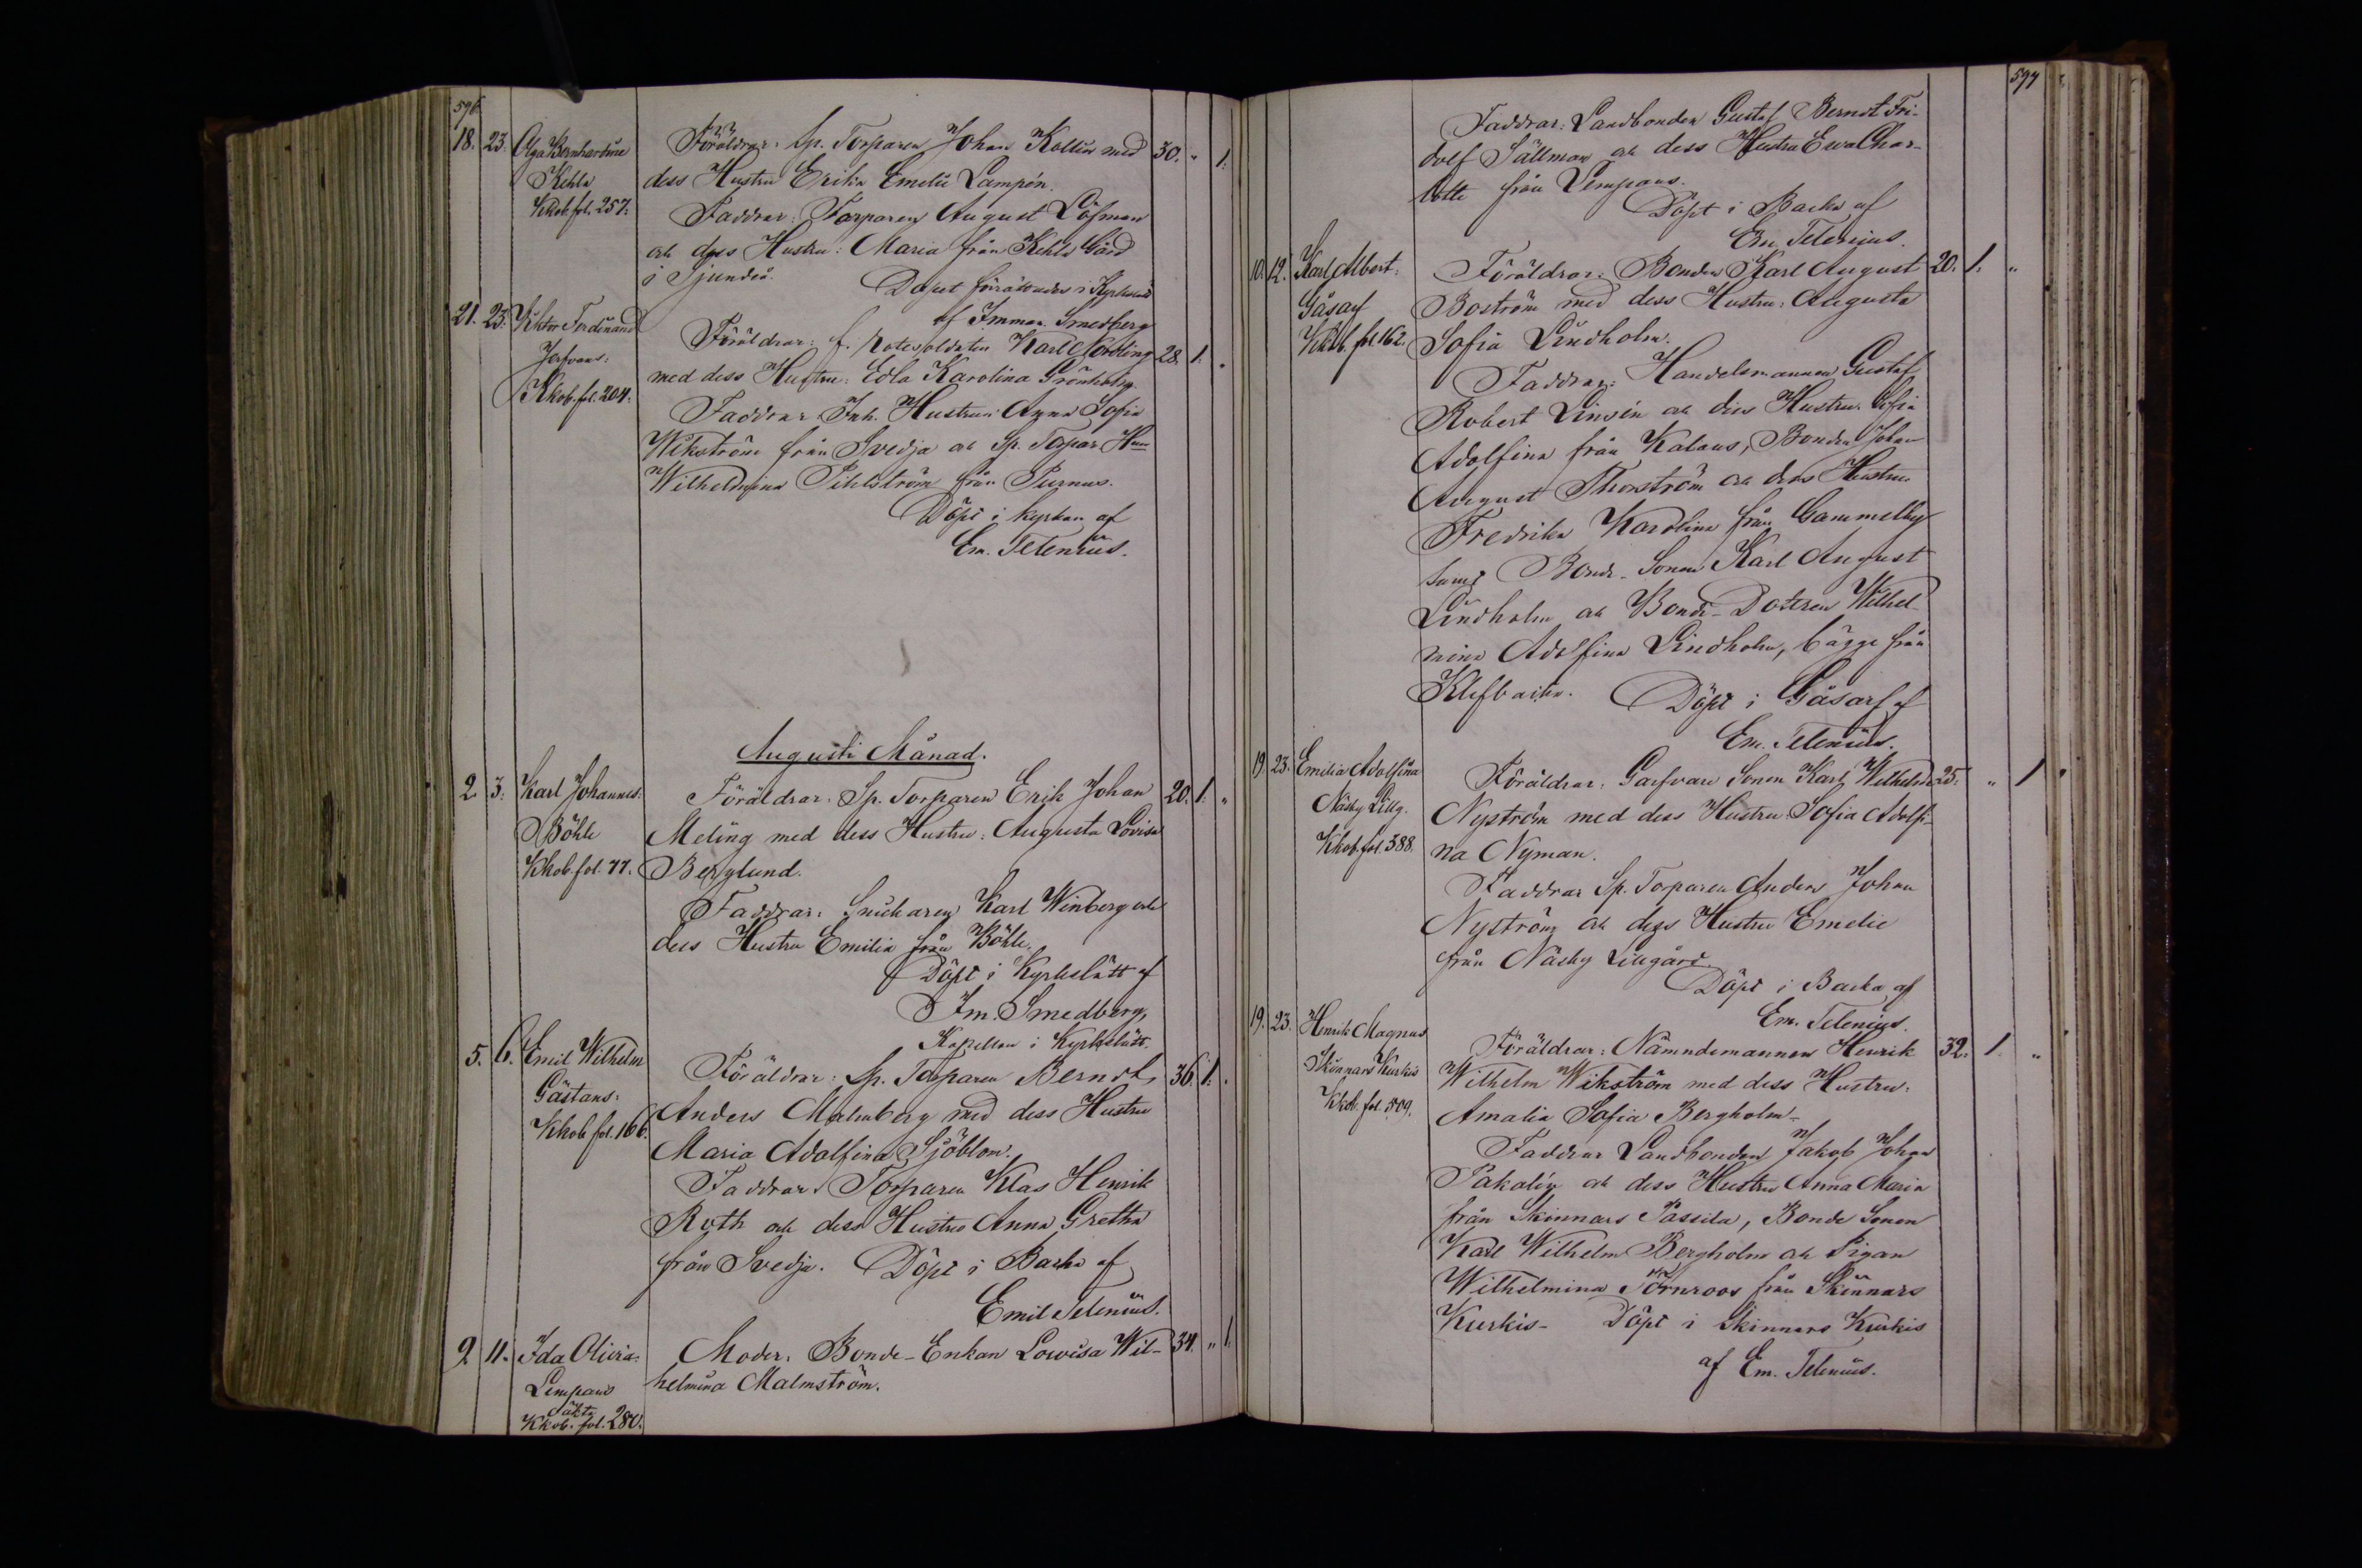 596.
18. 23. Olga Bernhardine Föräldrar: Sp. Torparen Johan Kollin med 30. " 1.
Kehla dess Hustru Erika Emelie Lampén.
Kkob. fol. 257. Faddrar: Torparen August Löfman
och dess Hustru: Maria från Kehla Gård
i Sjundeå. Dopet förrättades i Kyrkslätt
af Imman. Smedberg
21. 23. Viktor Ferdinand Föräldrar: f. Rotesoldaten Karl Nordling 28. 1. "
Jerfvans: med dess Hustru: Edla Karolina Grönholm.
Kkob. fol. 204. Faddrar: Inh. Hustrun Anna Sofia
Wikström från Svedja och Sp. Torpar. Hun
Wilhelmina Pihlström från Purnus.
Döpt i kyrkan af
Em. Telenius.
Augusti Månad.
2. 3. Karl Johannes: Föräldrar: Sp. Torparen Erik Johan 20. 1. "
Böhle Meling med dess Hustru: Augusta Lovisa
Kkob. fol. 77. Berglund.
Faddrar: Snickaren Karl Winberg och
dess Hustru Emilia från Böhle.
Döpt i Kyrkslätt af
Im. Smedberg,
Kapellan i Kyrkslätt.
5. 6. Emil Wilhelm Föräldrar: Sp. Torparen Berndt 36. 1. "
Gästans: Anders Malmberg med dess Hustru
Kkob. fol. 166. Maria Adolfina Sjöblom.
Faddrar: Torparen Klas Henrik
Roth och dess Hustru Anna Gretha
från Svedja. Döpt i Backa af
Emil Telenius.
9. 11. Ida Olivia: Moder: Bonde-Enkan Lowisa Wil- 34. " 1.
Lempans helmina Malmström.
oäkta
Kkob. fol. 280.
597
Faddrar: Landbonden Gustaf Berndt Fri-
dolf Sällman och dess Hustru Ewa Char-
lotte från Lempans.
Döpt i Backa af
Em. Telenius.
10. 12. Karl Albert: Föräldrar: Bonden Karl August 20. 1. "
Gåsarf Boström med dess Hustru: Augusta
Kkob. fol. 162. Sofia Lindholm.
Faddrar: Handelsmannen Gustaf
Robert Linsén och dess Hustru Sofia
Adolfina från Kalans, Bonden Johan
August Thorström och dess Hustru
Fredrika Karolina från Gammelby
samt Bonde-Sonen Karl August
Lindholm och Bonde-Dottren Wilhel-
mina Adolfina Lindholm, bägge från
Klefbacka. Döpt i Gåsarf af
Em. Telenius.
19. 23. Emilia Adolfina Föräldrar: Garfvare Sonen Karl Wilhelm 25. " 1
Näsby Lillg. Nyström med dess Hustru Sofia Adolfi-
Kkob. fol. 388. na Nyman.
Faddrar Sp. Torparen Anders Johan
Nyström och dess Hustru Emelie
från Näsby Lillgård.
Döpt i Backa af
Em. Telenius.
19. 23. Henrik Magnus Föräldrar: Nämndemannen Henrik 32. 1. "
Skinnars Kurkis Wilhelm Wikström med dess Hustru:
Kkob. fol. 509. Amalia Sofia Bergholm-
Faddrar Landbonden Jakob Johan
Pakalén och dess Hustru Anna Maria
från Skinnars Passila, Bonde Sonen
Karl Wilhelm Bergholm och Pigan
Wilhelmina Törnroos från Skinnars
Kurkis- Döpt i Skinnars Kurkis
af Em. Telenius.